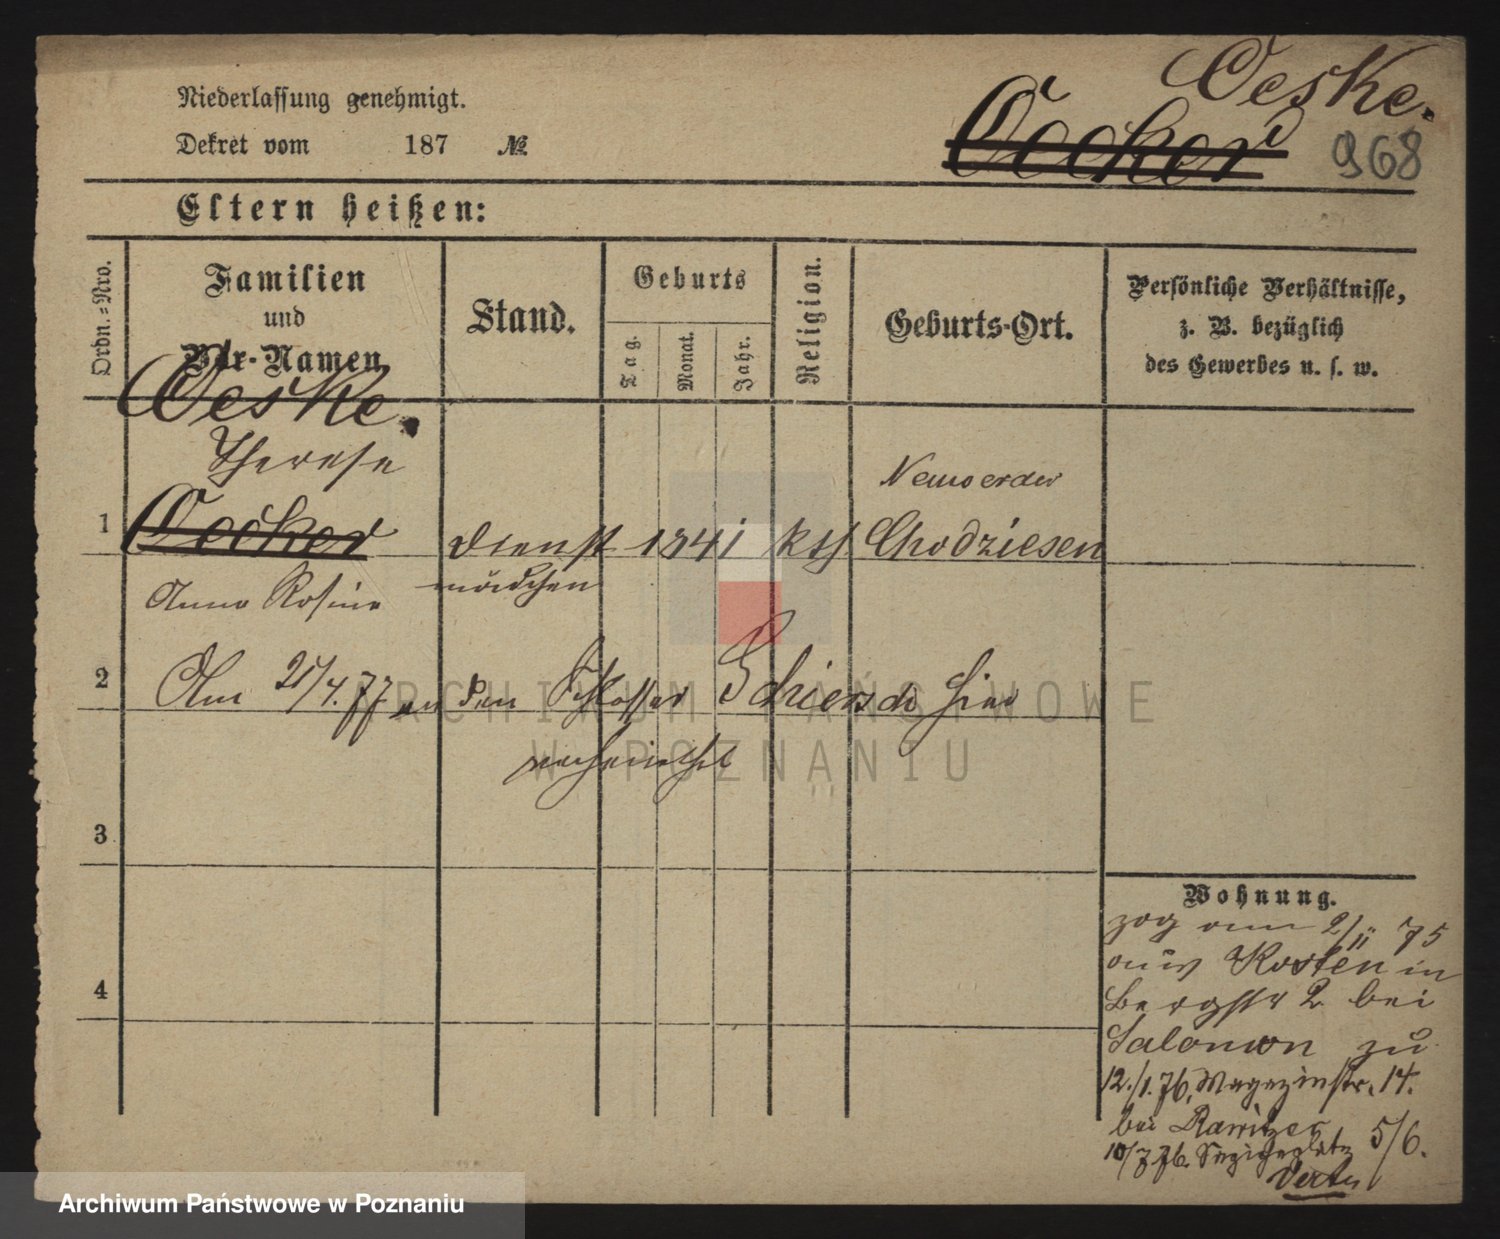 Oeske.
Niederlassung genehmigt.
Dekret vom 187 №
Oecker
968
Eltern heißen:
Ordn.=Nro.
Familien
und
Vor-Namen
Stand.
Geburts
Tag.
Monat.
Jahr.
Religion.
Geburts-Ort.
Persönliche Verhältnisse,
z. B. bezüglich
des Gewerbes u. s. w.
Oeske.
Therese
1
Oecker
Dienst
1841
kth
Chodziesen
mädchen
Anna Rosine
2
Am 21/4.77 an den Schlosser hier
verheirathet
3
4
Wohnung.
zog am 2/11 75
aus Kosten in
Bergstr 2 bei
Salomon zu
12./1.76, Magazinstr. 14.
bei
10/7 76. 5/6.
ARCHIWUM PAŃSTWOWE
W POZNANIU
Archiwum Państwowe w Poznaniu